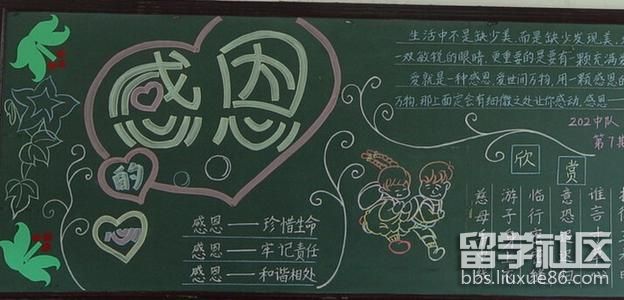 感恩
的
心
感恩——珍惜生命
感恩——牢记责任
感恩——和谐相处
生活中不是缺少美，而是缺少发现美，
一双敏锐的眼睛，更重要的是要有一颗充满
爱就是一种感恩，爱世间万物，用一颗感恩的
万物，那上面定会有细微之处让你感动，感恩——
202中队
第7期
欣赏
慈母
游子
临行
意恐
谁言
留学社区
bbs.liuxue86.com